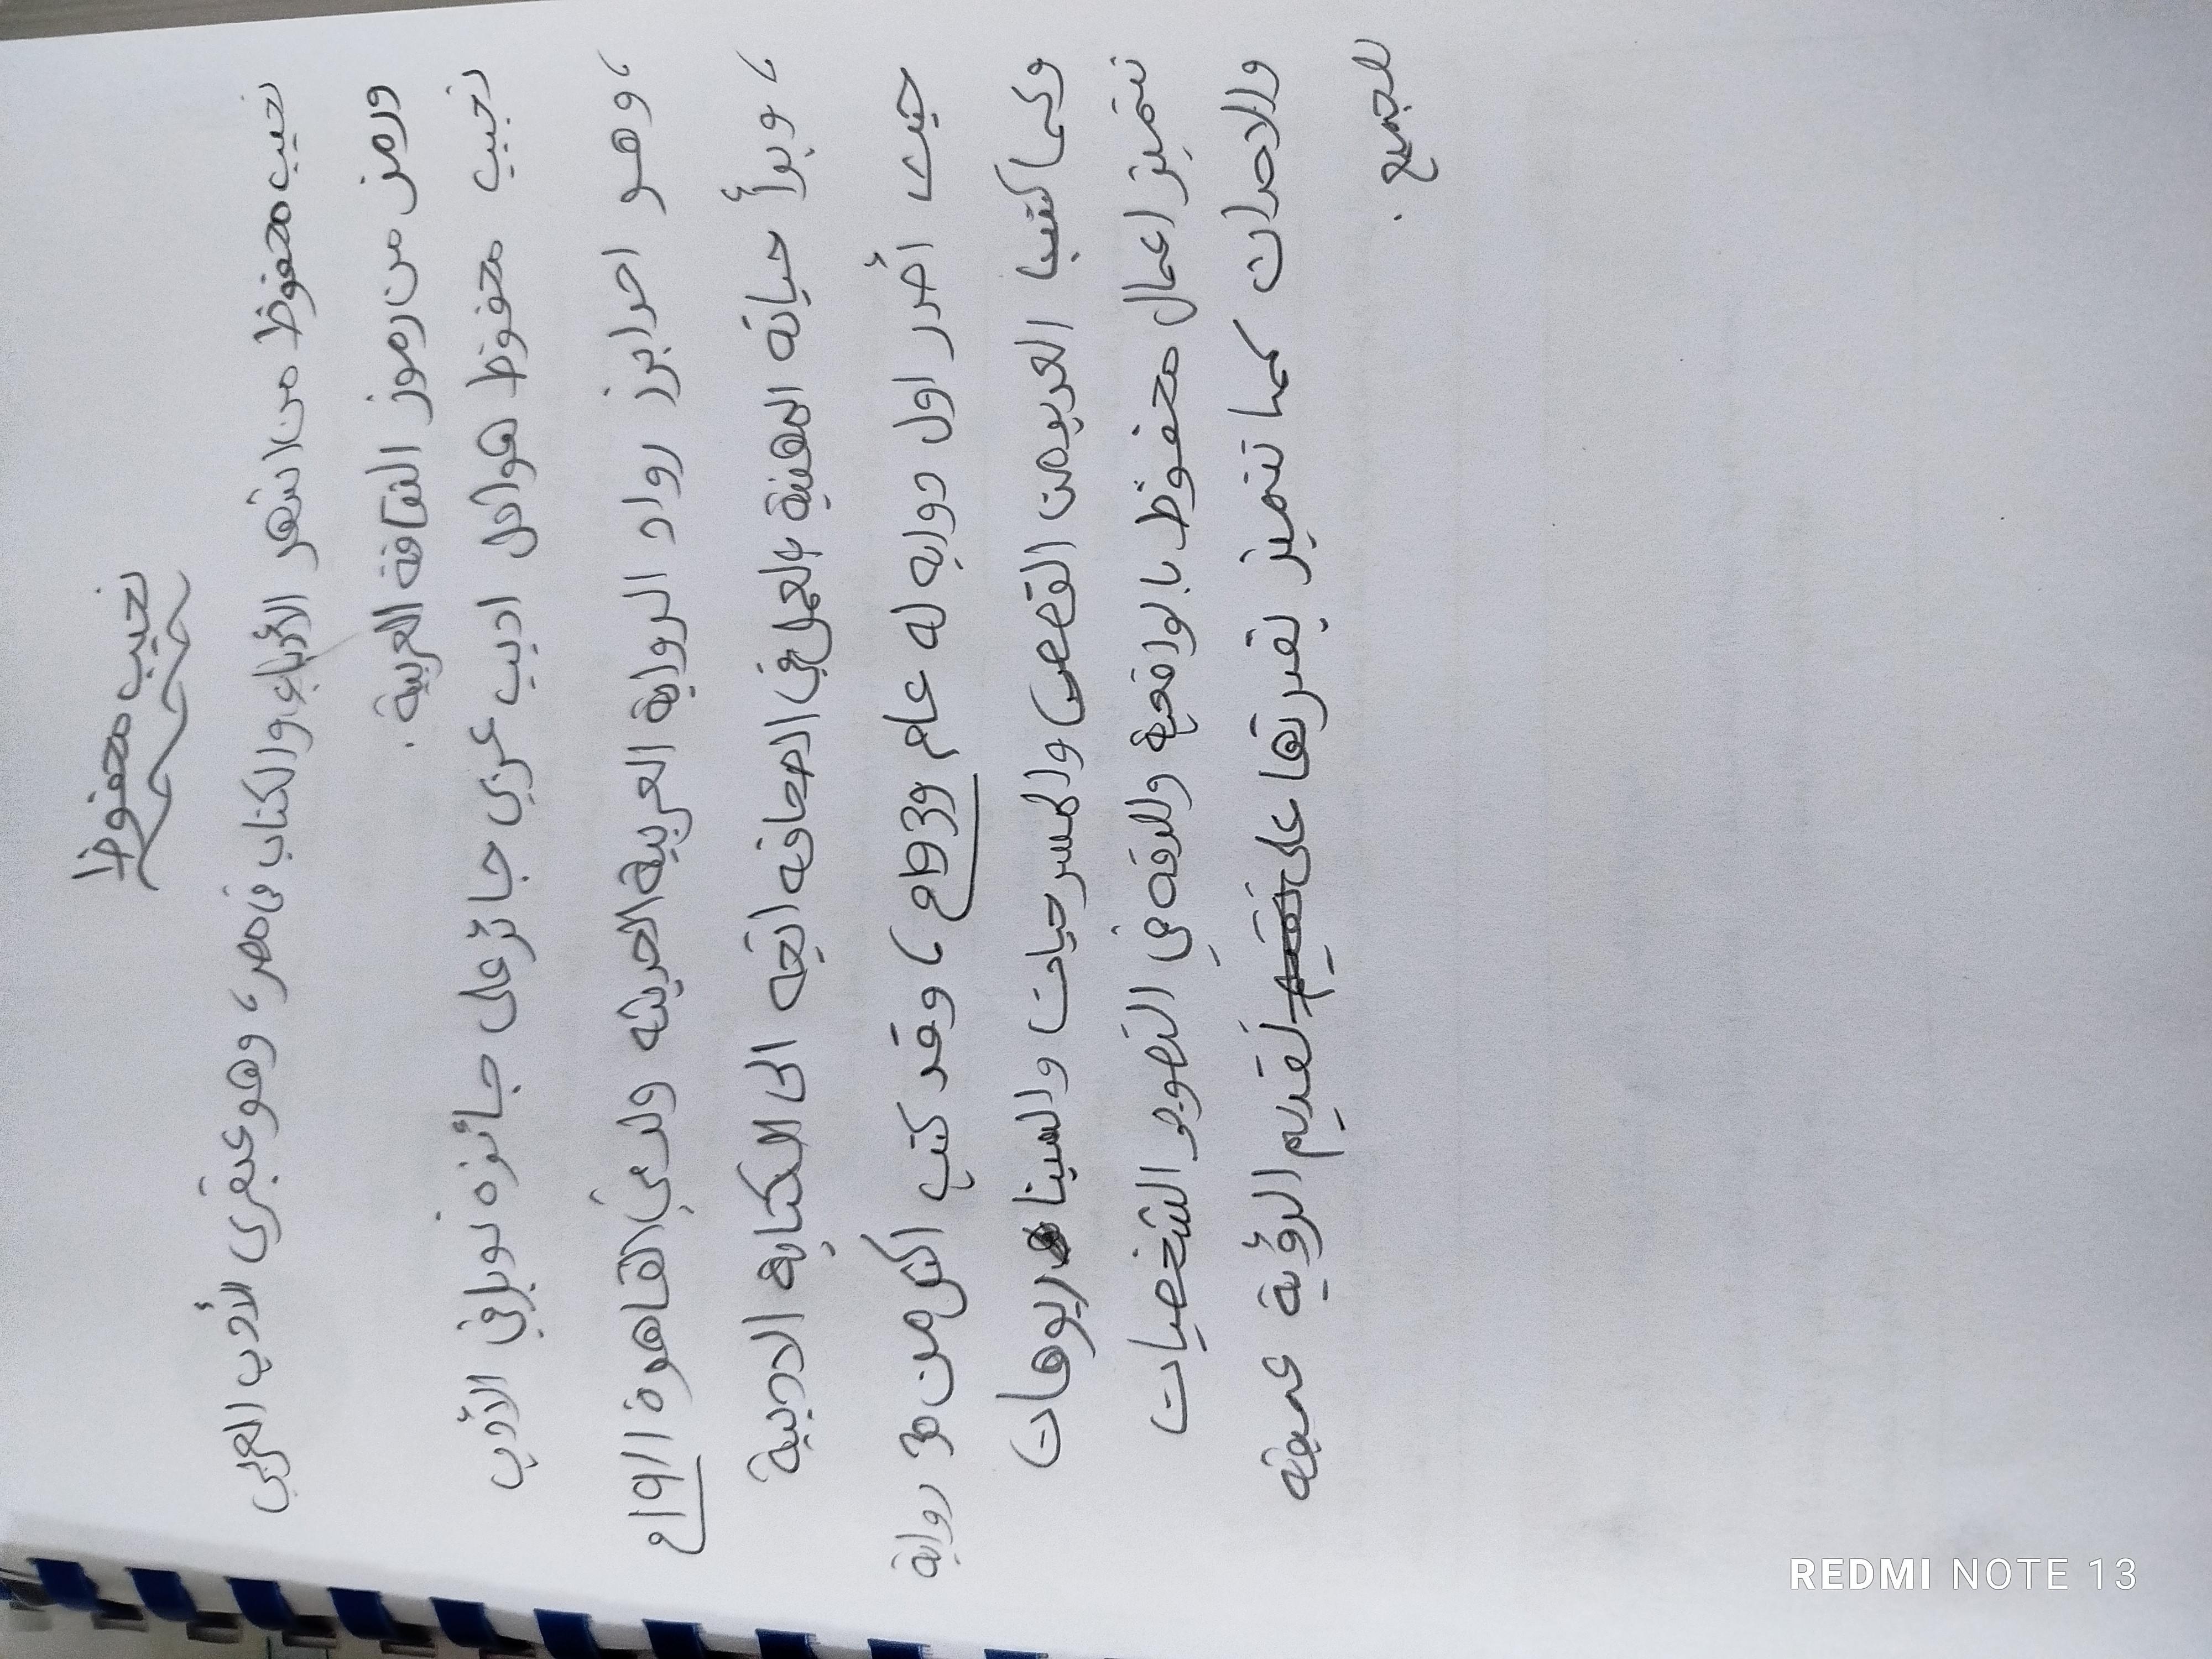 نجيب محفوظ
نجيب محفوظ من اشهر الأدباء والكتاب في مصر، وهو عبقري الأدب العربي
ورمز من رموز الثقافة العربية.
نجيب محفوظ هو اول اديب عربي حائز على جائزة نوبل في الأدب
، وهو احد ابرز رواد الرواية العربية الحديثه ولد في القاهرة 1911م
، وبدأ حياته المهنية بالعمل في الصحافه اتجه الى الكتابه الادبية
حيث أصدر اول روايه له عام 1939م، وقد كتب اكثر من 30 رواية
وكما كتب العديد من القصص والمسرحيات والسيناريوهات
تتميز اعمال محفوظ بالواقعيه والدقه في التصوير الشخصيات
والاحداث كما تتميز بقدرتها على تقديم الرؤية عميقه
للجميع.
REDMI NOTE 13